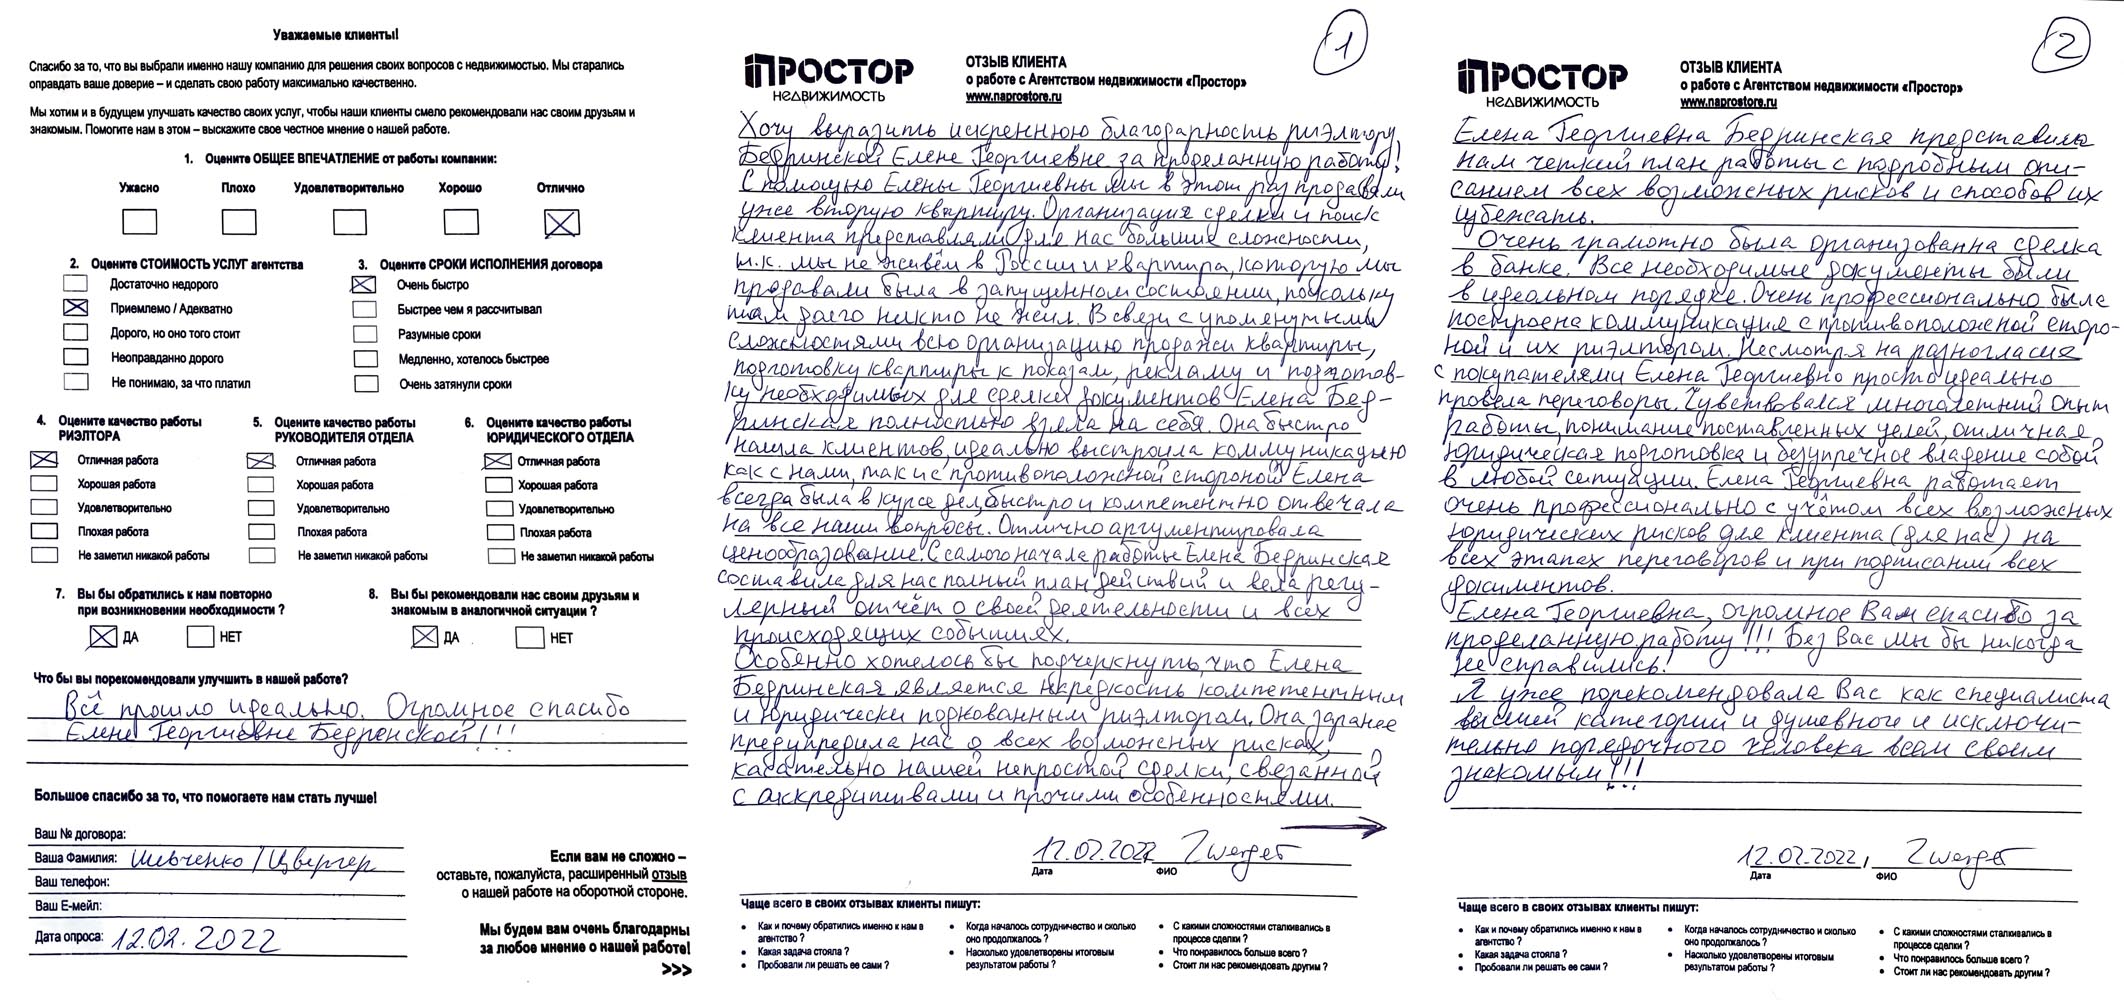 Уважаемые клиенты!
Спасибо за то, что вы выбрали именно нашу компанию для решения своих вопросов с недвижимостью. Мы старались
оправдать ваше доверие – и сделать свою работу максимально качественно.
Мы хотим и в будущем улучшать качество своих услуг, чтобы наши клиенты смело рекомендовали нас своим друзьям и
знакомым. Помогите нам в этом – выскажите свое честное мнение о нашей работе.
1. Оцените ОБЩЕЕ ВПЕЧАТЛЕНИЕ от работы компании:
Ужасно Плохо Удовлетворительно Хорошо Отлично
2. Оцените СТОИМОСТЬ УСЛУГ агентства
Достаточно недорого
Приемлемо / Адекватно
Дорого, но оно того стоит
Неоправданно дорого
Не понимаю, за что платил
3. Оцените СРОКИ ИСПОЛНЕНИЯ договора
Очень быстро
Быстрее чем я рассчитывал
Разумные сроки
Медленно, хотелось быстрее
Очень затянули сроки
4. Оцените качество работы
РИЭЛТОРА
Отличная работа
Хорошая работа
Удовлетворительно
Плохая работа
Не заметил никакой работы
5. Оцените качество работы
РУКОВОДИТЕЛЯ ОТДЕЛА
Отличная работа
Хорошая работа
Удовлетворительно
Плохая работа
Не заметил никакой работы
6. Оцените качество работы
ЮРИДИЧЕСКОГО ОТДЕЛА
Отличная работа
Хорошая работа
Удовлетворительно
Плохая работа
Не заметил никакой работы
7. Вы бы обратились к нам повторно
при возникновении необходимости ?
ДА НЕТ
8. Вы бы рекомендовали нас своим друзьям и
знакомым в аналогичной ситуации ?
ДА НЕТ
Что бы вы порекомендовали улучшить в нашей работе?
Всё прошло идеально. Огромное спасибо
Елене Георгиевне Бедринской!!!
Большое спасибо за то, что помогаете нам стать лучше!
Ваш № договора:
Ваша Фамилия: Шевченко / Цвергер
Ваш телефон:
Ваш E-мейл:
Дата опроса: 12.02.2022
Если вам не сложно –
оставьте, пожалуйста, расширенный отзыв
о нашей работе на оборотной стороне.
Мы будем вам очень благодарны
за любое мнение о нашей работе!
>>>
1
ПРОСТОР
НЕДВИЖИМОСТЬ
ОТЗЫВ КЛИЕНТА
о работе с Агентством недвижимости «Простор»
www.naprostore.ru
Хочу выразить искреннюю благодарность риэлтору
Бедринской Елене Георгиевне за проделанную работу!
С помощью Елены Георгиевны мы в этот раз продавали
уже вторую квартиру. Организация сделки и поиск
клиента представляли для нас большие сложности,
т.к. мы не живём в России и квартира, которую мы
продавали была в запущенном состоянии, поскольку
там долго никто не жил. В связи с упомянутыми
сложностями всю организацию продажи квартиры,
подготовку квартиры к показам, рекламу и подготов-
ку необходимых для сделки документов Елена Бед-
ринская полностью взяла на себя. Она быстро
нашла клиентов, идеально выстроила коммуникацию
как с нами, так и с противоположной стороной. Елена
всегда была в курсе дел, быстро и компетентно отвечала
на все наши вопросы. Отлично аргументировала
ценообразование. С самого начала работы Елена Бедринская
составила для нас полный план действий и вела регу-
лярный отчёт о своей деятельности и всех
происходящих событиях.
Особенно хотелось бы подчеркнуть, что Елена
Бедринская является на редкость компетентным
и юридически подкованным риэлтором. Она заранее
предупредила нас о всех возможных рисках,
касательно нашей непростой сделки, связанной
с аккредитивами и прочими особенностями.
12.02.2022 Zwerger
Дата ФИО
Чаще всего в своих отзывах клиенты пишут:
• Как и почему обратились именно к нам в
агентство ?
• Какая задача стояла ?
• Пробовали ли решать ее сами ?
• Когда началось сотрудничество и сколько
оно продолжалось ?
• Насколько удовлетворены итоговым
результатом работы ?
• С какими сложностями сталкивались в
процессе сделки ?
• Что понравилось больше всего ?
• Стоит ли нас рекомендовать другим ?
2
ПРОСТОР
НЕДВИЖИМОСТЬ
ОТЗЫВ КЛИЕНТА
о работе с Агентством недвижимости «Простор»
www.naprostore.ru
Елена Георгиевна Бедринская представила
нам чёткий план работы с подробным опи-
санием всех возможных рисков и способов их
избежать.
Очень грамотно была организованна сделка
в банке. Все необходимые документы были
в идеальном порядке. Очень профессионально была
построена коммуникация с противоположной сторо-
ной и их риэлтором. Несмотря на разногласия
с покупателями Елена Георгиевна просто идеально
провела переговоры. Чувствовался многолетний опыт
работы, понимание поставленных целей, отличная
юридическая подготовка и безупречное владение собой
в любой ситуации. Елена Георгиевна работает
очень профессионально с учётом всех возможных
юридических рисков для клиента (для нас) на
всех этапах переговоров и при подписании всех
документов.
Елена Георгиевна, огромное Вам спасибо за
проделанную работу!!! Без Вас мы бы никогда
не справились!
Я уже порекомендовала Вас как специалиста
высшей категории и душевного и исключи-
тельно порядочного человека всем своим
знакомым!!!
12.02.2022, Zwerger
Дата ФИО
Чаще всего в своих отзывах клиенты пишут:
• Как и почему обратились именно к нам в
агентство ?
• Какая задача стояла ?
• Пробовали ли решать ее сами ?
• Когда началось сотрудничество и сколько
оно продолжалось ?
• Насколько удовлетворены итоговым
результатом работы ?
• С какими сложностями сталкивались в
процессе сделки ?
• Что понравилось больше всего ?
• Стоит ли нас рекомендовать другим ?